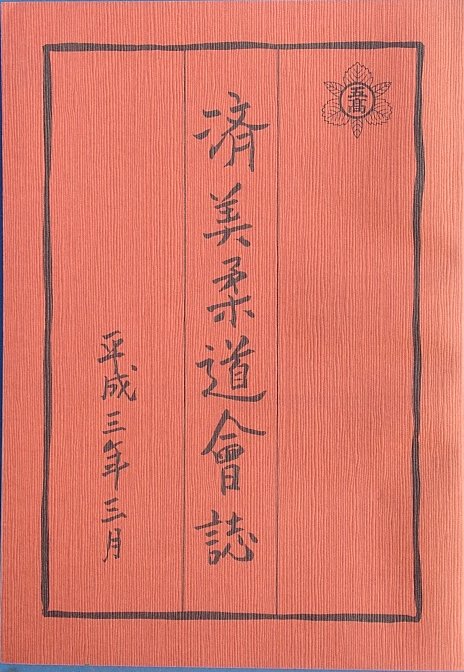 五高
済美柔道會誌
平成三年三月